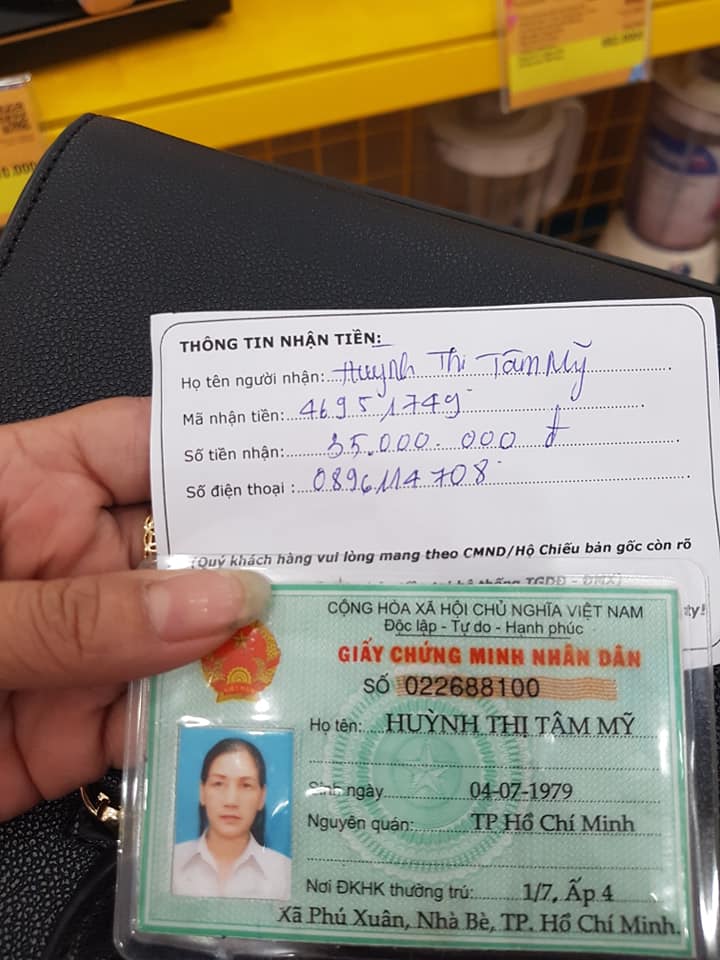 THÔNG TIN NHẬN TIỀN:
Họ tên người nhận: Huỳnh Thị Tâm Mỹ
Mã nhận tiền: 46951749
Số tiền nhận: 35.000.000 đ
Số điện thoại : 0896114708
(Quý khách hàng vui lòng mang theo CMND/Hộ Chiếu bản gốc còn rõ
hệ thống TGDĐ - ĐMX)
CỘNG HÒA XÃ HỘI CHỦ NGHĨA VIỆT NAM
Độc lập - Tự do - Hạnh phúc
GIẤY CHỨNG MINH NHÂN DÂN
SỐ 022688100
Họ tên: HUỲNH THỊ TÂM MỸ
Sinh ngày 04-07-1979
Nguyên quán: TP Hồ Chí Minh
Nơi ĐKHK thường trú: 1/7, Ấp 4
Xã Phú Xuân, Nhà Bè, TP. Hồ Chí Minh.